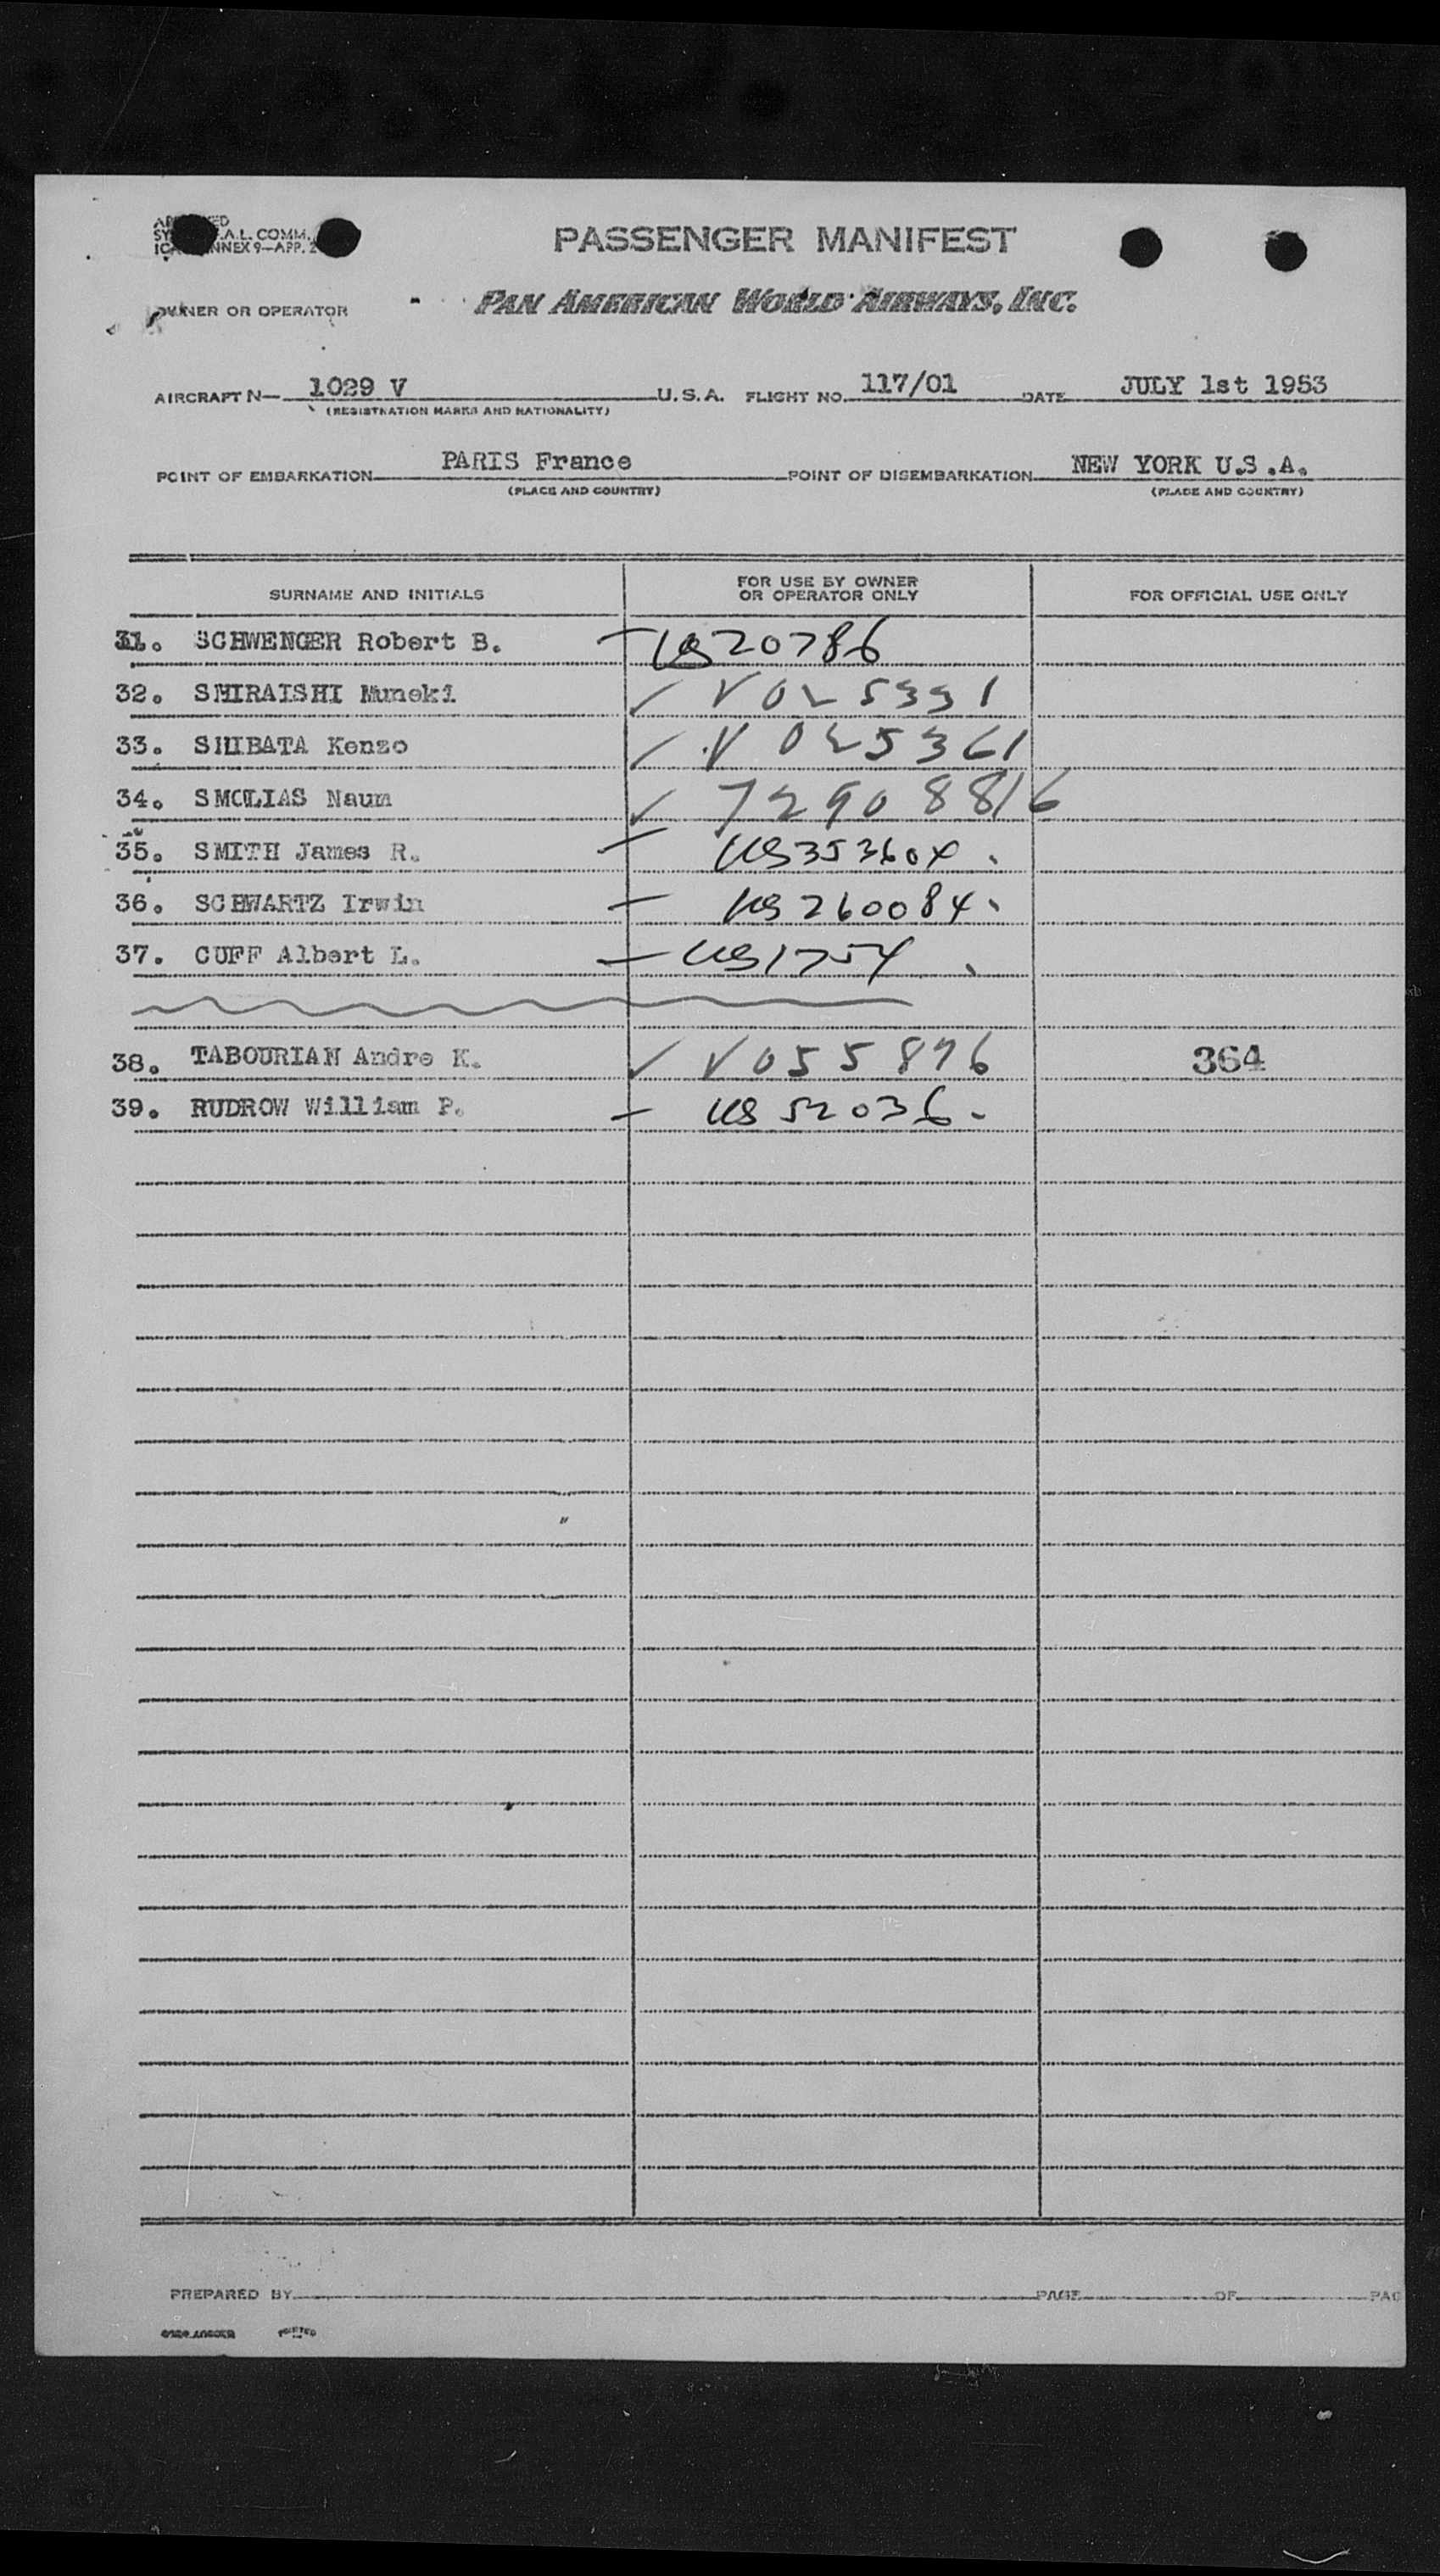 PASSENGER MANIFEST
.A.L. COMM.
NNEX 9—APP. 2
OWNER OR OPERATOR PAN AMERICAN WORLD AIRWAYS, INC.
AIRCRAFT N— 1029 V U.S.A. FLIGHT NO. 117/01 DATE JULY 1st 1953
(REGISTRATION MARKS AND NATIONALITY)
POINT OF EMBARKATION PARIS France POINT OF DISEMBARKATION NEW YORK U.S.A.
(PLACE AND COUNTRY) (PLACE AND COUNTRY)
SURNAME AND INITIALS FOR USE BY OWNER OR OPERATOR ONLY FOR OFFICIAL USE ONLY
31. SCHWENGER Robert B. — US 20786
32. SHIRAISHI Muneki ✓ V 025331
33. SHIBATA Kenzo ✓ V 025361
34. SMOLIAS Naum ✓ 72908816
35. SMITH James R. — US 353604
36. SCHWARTZ Irwin — US 260084
37. CUFF Albert L. — US 1754
38. TABOURIAN Andre K. ✓ V 055876 364
39. RUDROW William P. — US 52036
PREPARED BY PAGE OF PAG
PRINTED